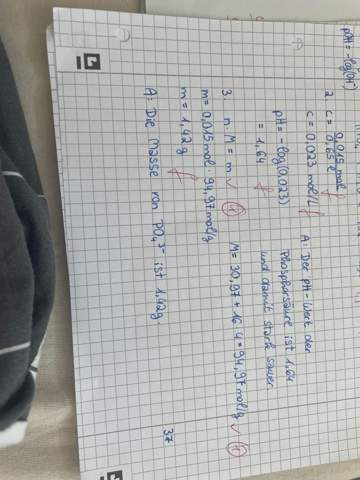 pH = -log(OH⁻)
2. c = 0,015 mol / 0,65 l f
c = 0,023 mol/L f
pH = -log(0,023)
= 1,64 f
A: Der pH-Wert der
Phosphorsäure ist 1,64
und damit stark sauer.
3. n·M = m ✓
M = 30,97 + 16·4 = 94,97 mol/g ✓
m = 0,015 mol · 94,97 mol/g
m = 1,42 g f
A: Die Masse von PO₄³⁻ ist 1,42g.
37